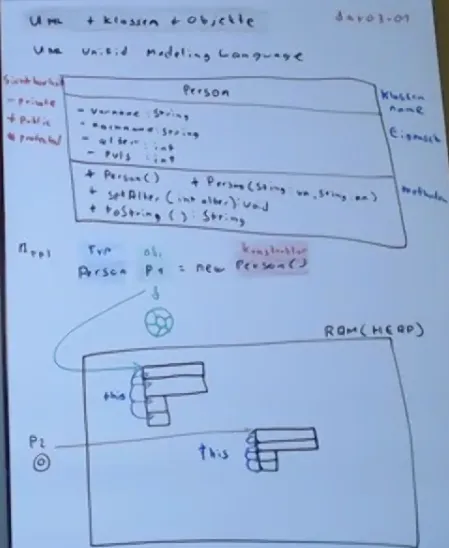 UML + Klassen + Objekte
UML Unified Modeling Language
Person
Klassen
name
- private
+ Public
# protected
- vorname : String
- nachname : String
- alter : int
- Puls : int
Eigensch
+ Person() + Person(String : vn, String : nn)
+ setAlter (int alter) : void
+ toString () : String
Methoden
Typ obj Konstruktor
Person P1 = new Person()
RAM (HEAP)
this
P2
this